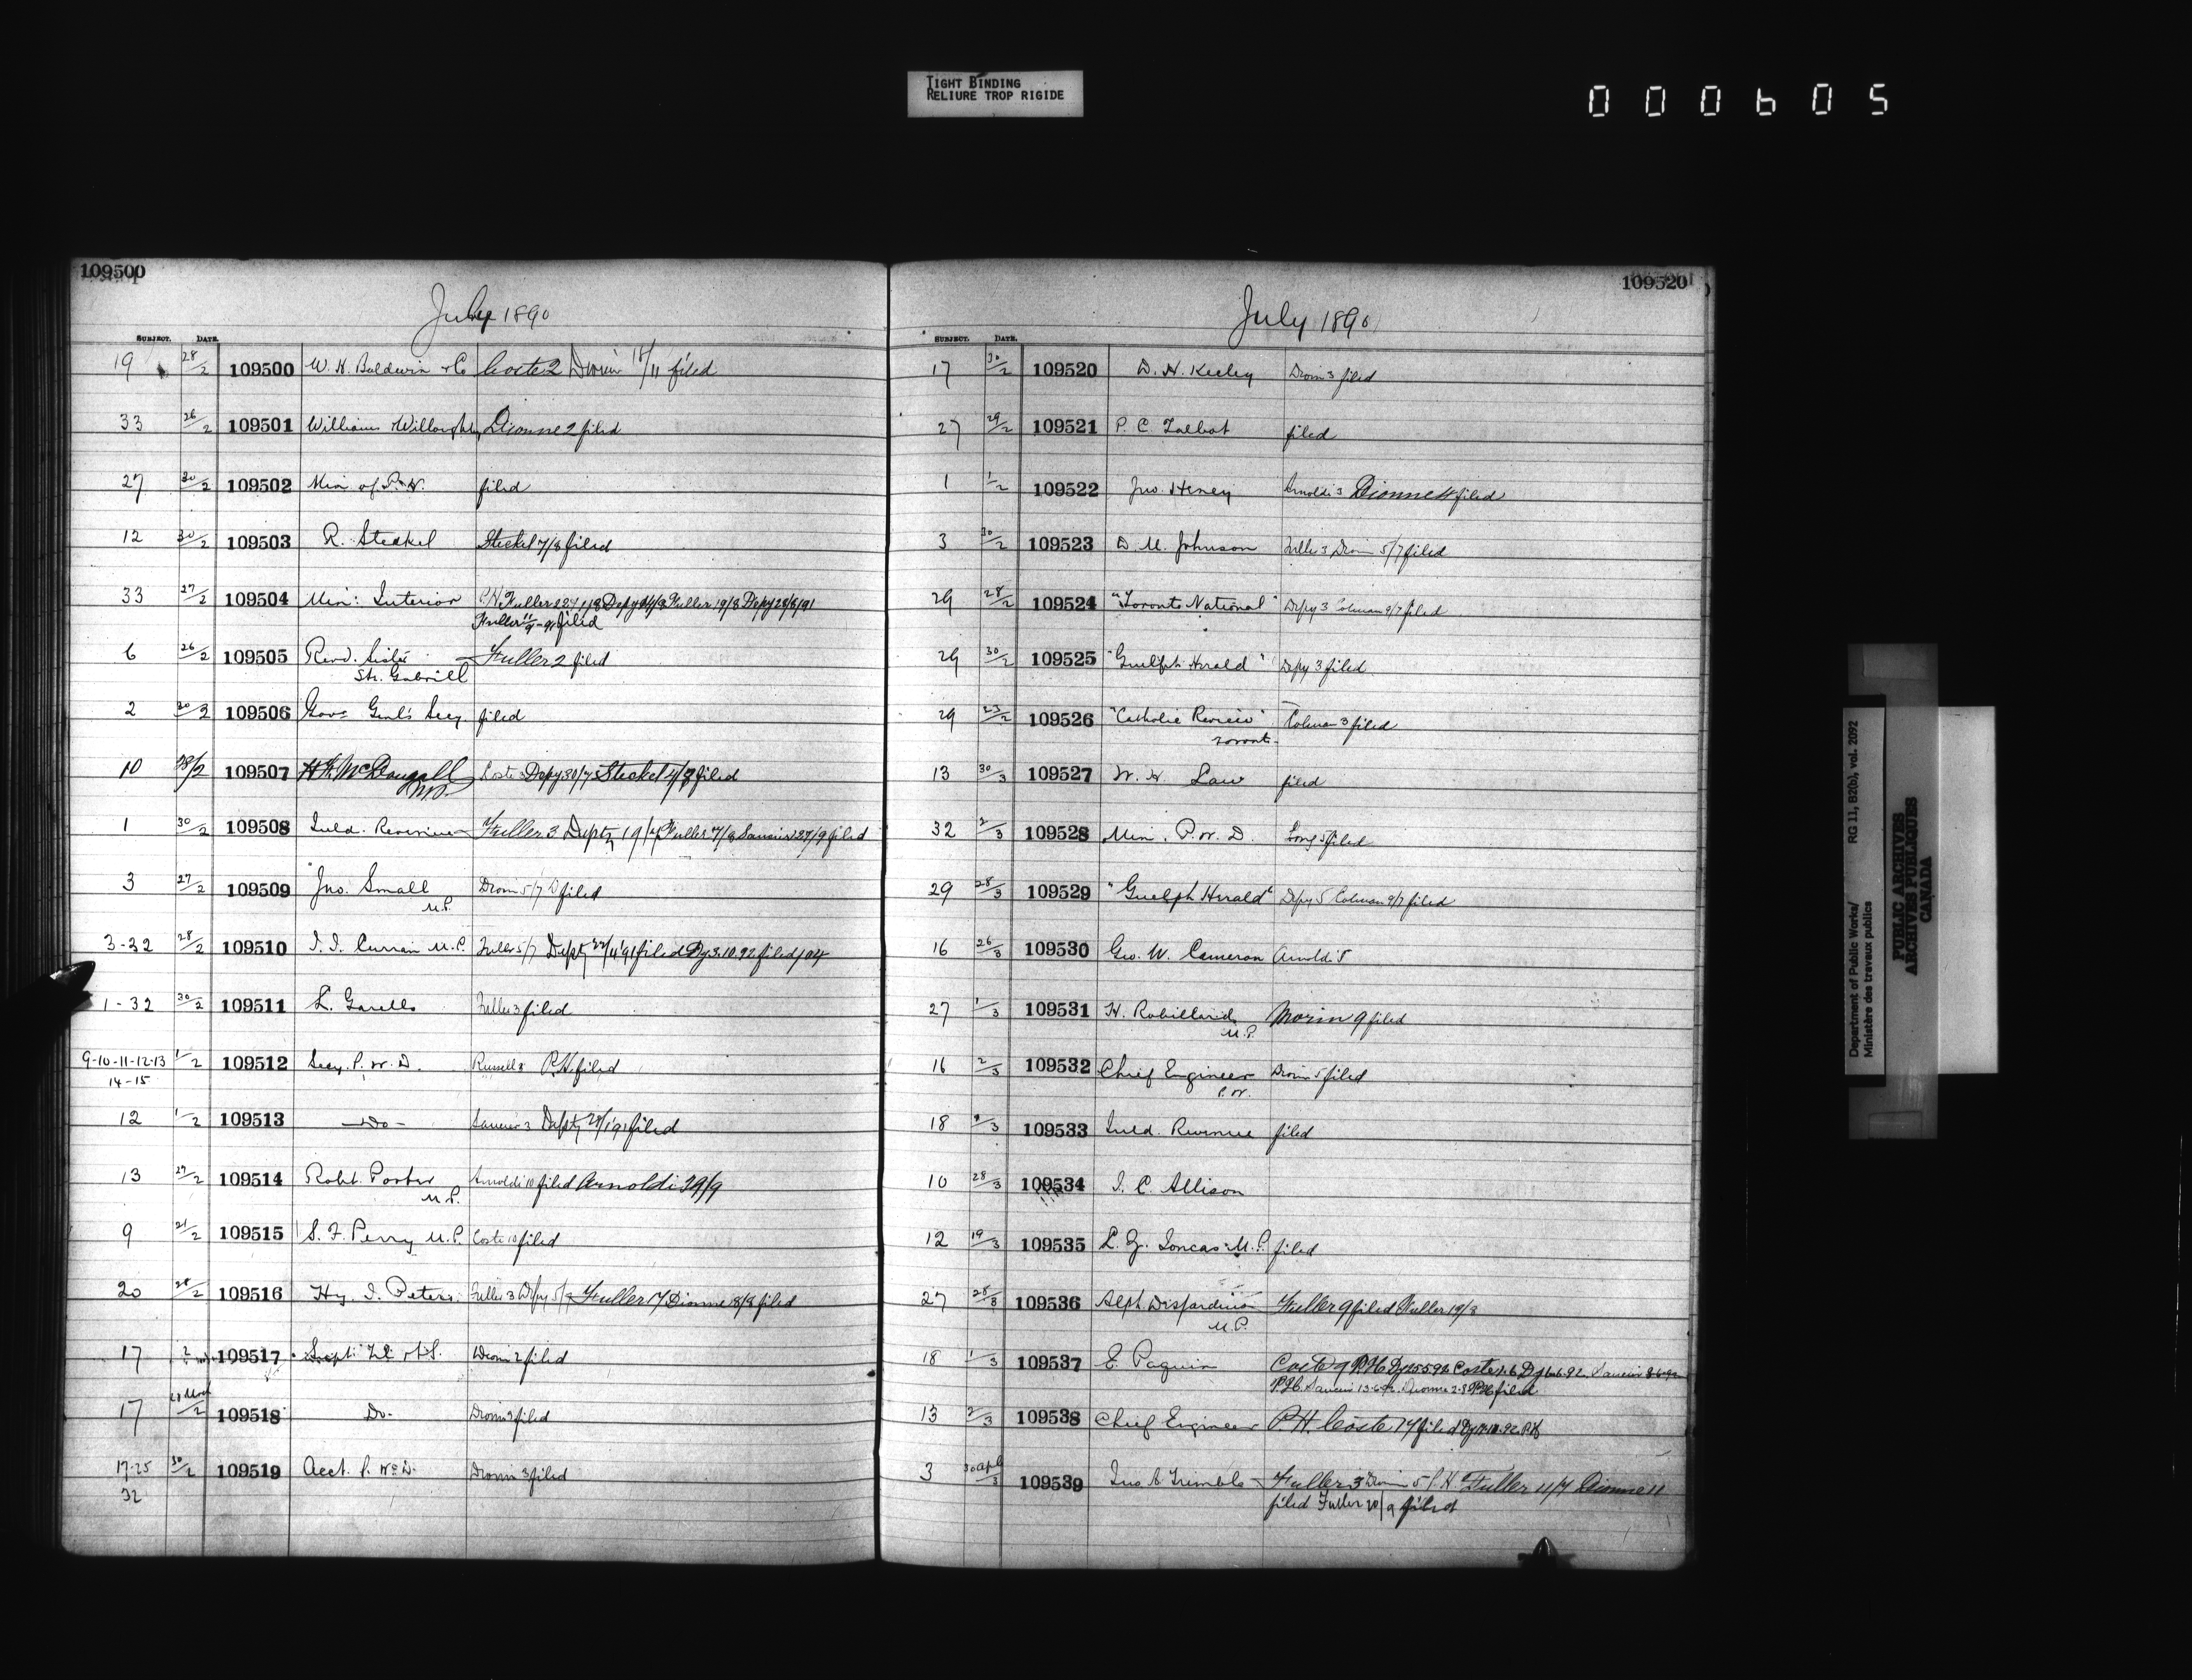 TIGHT BINDING
RELIURE TROP RIGIDE
000605
109500
July 1890
SUBJECT. DATE.
19 28/2 109500 W. H. Baldwin & Co Coste 2 Drouin 18/11 filed
33 26/2 109501 Williams & Willoughby Dionne 2 filed
27 30/2 109502 Min of P. W. filed
12 30/2 109503 R. Steckel Steckel 7/8 filed
33 27/2 109504 Min: Interior
Fuller 11/9-91 filed
6 26/2 109505 Revd. Sister Fuller 2 filed
St. Gabriell
2 30/2 109506 Govr Genl's Secy. filed
10 28/2 109507 H. F. McDougall Coste 3 Depy 30/7 Steckel 4/8 filed
M.P.
1 30/2 109508 Inld. Revenue Fuller 3 Depty 19/7 Fuller 7/8 Saucier 27/9 filed
3 27/2 109509 Jno. Small Drouin 5/7 filed
M.P.
3-32 28/2 109510 J. J. Curran M.P. Fuller 5/7 Depty 22/4 91 filed Dy 3.10.92 filed
1-32 30/2 109511 L. Garello Fuller 3 filed
9-10-11-12-13 1/2 109512 Secy. P. W. D. Russell 3 P.H. filed
14-15
12 1/2 109513 - Do - Saucier 3 Depty 28/1 91 filed
13 27/2 109514 Robt. Porter Arnoldi 10 filed Arnoldi 29/9
M.P.
9 21/2 109515 S. F. Perry M.P. Coste 10 filed
20 28/2 109516 Hy. J. Peters Fuller 3 Depy 5/7 Fuller 17 Dionne 18/8 filed
17 2 109517 Supt. Tel & S. Drouin 2 filed
17 109518 Do - Drouin 2 filed
17-25 30/2 109519 Acct. P. Wks D. Drouin 3 filed
32
109520
July 1890
SUBJECT. DATE.
17 30/2 109520 D. H. Keeley Drouin 3 filed
27 29/2 109521 P. C. Talbot filed
1 1/2 109522 Jno. Heney Arnoldi 3 Dionne 4 filed
3 30/2 109523 D. M. Johnson Fuller 3 Drouin 5/7 filed
29 28/2 109524 "Toronto National" Depy 3 Colman 9/7 filed
29 30/2 109525 "Guelph Herald" Depy 3 filed
29 23/2 109526 "Catholic Review" Colman 3 filed
Toronto
13 30/3 109527 W. H. Law filed
32 2/3 109528 Min. P. W. D. Long 5 filed
29 28/3 109529 "Guelph Herald" Depy 5 Colman 9/7 filed
16 26/3 109530 Geo. W. Cameron Arnoldi 5
27 1/3 109531 H. Robillard Morin 9 filed
M.P.
16 2/3 109532 Chief Engineer Drouin 5 filed
P.W.
18 2/3 109533 Inld. Revenue filed
10 28/3 109534 J. C. Allison
12 19/3 109535 L. Z. Joncas M.P. filed
27 28/3 109536 Alph. Desjardins Fuller 9 filed Fuller 19/8
M.P.
18 1/3 109537 E. Paquin Coste 9 P.H.
P.H. Saucier 13-6-92 Dionne filed
13 2/3 109538 Chief Engineer P.H. Coste 14 filed
3 30 Apl/3 109539 Jno. A. Trimble Fuller 3 Drouin 5 P.H. Fuller 11/7 Dionne 11
filed Fuller 20/9 filed
Department of Public Works/ RG 11, B2(b), vol. 2092
Ministère des travaux publics
PUBLIC ARCHIVES
ARCHIVES PUBLIQUES
CANADA